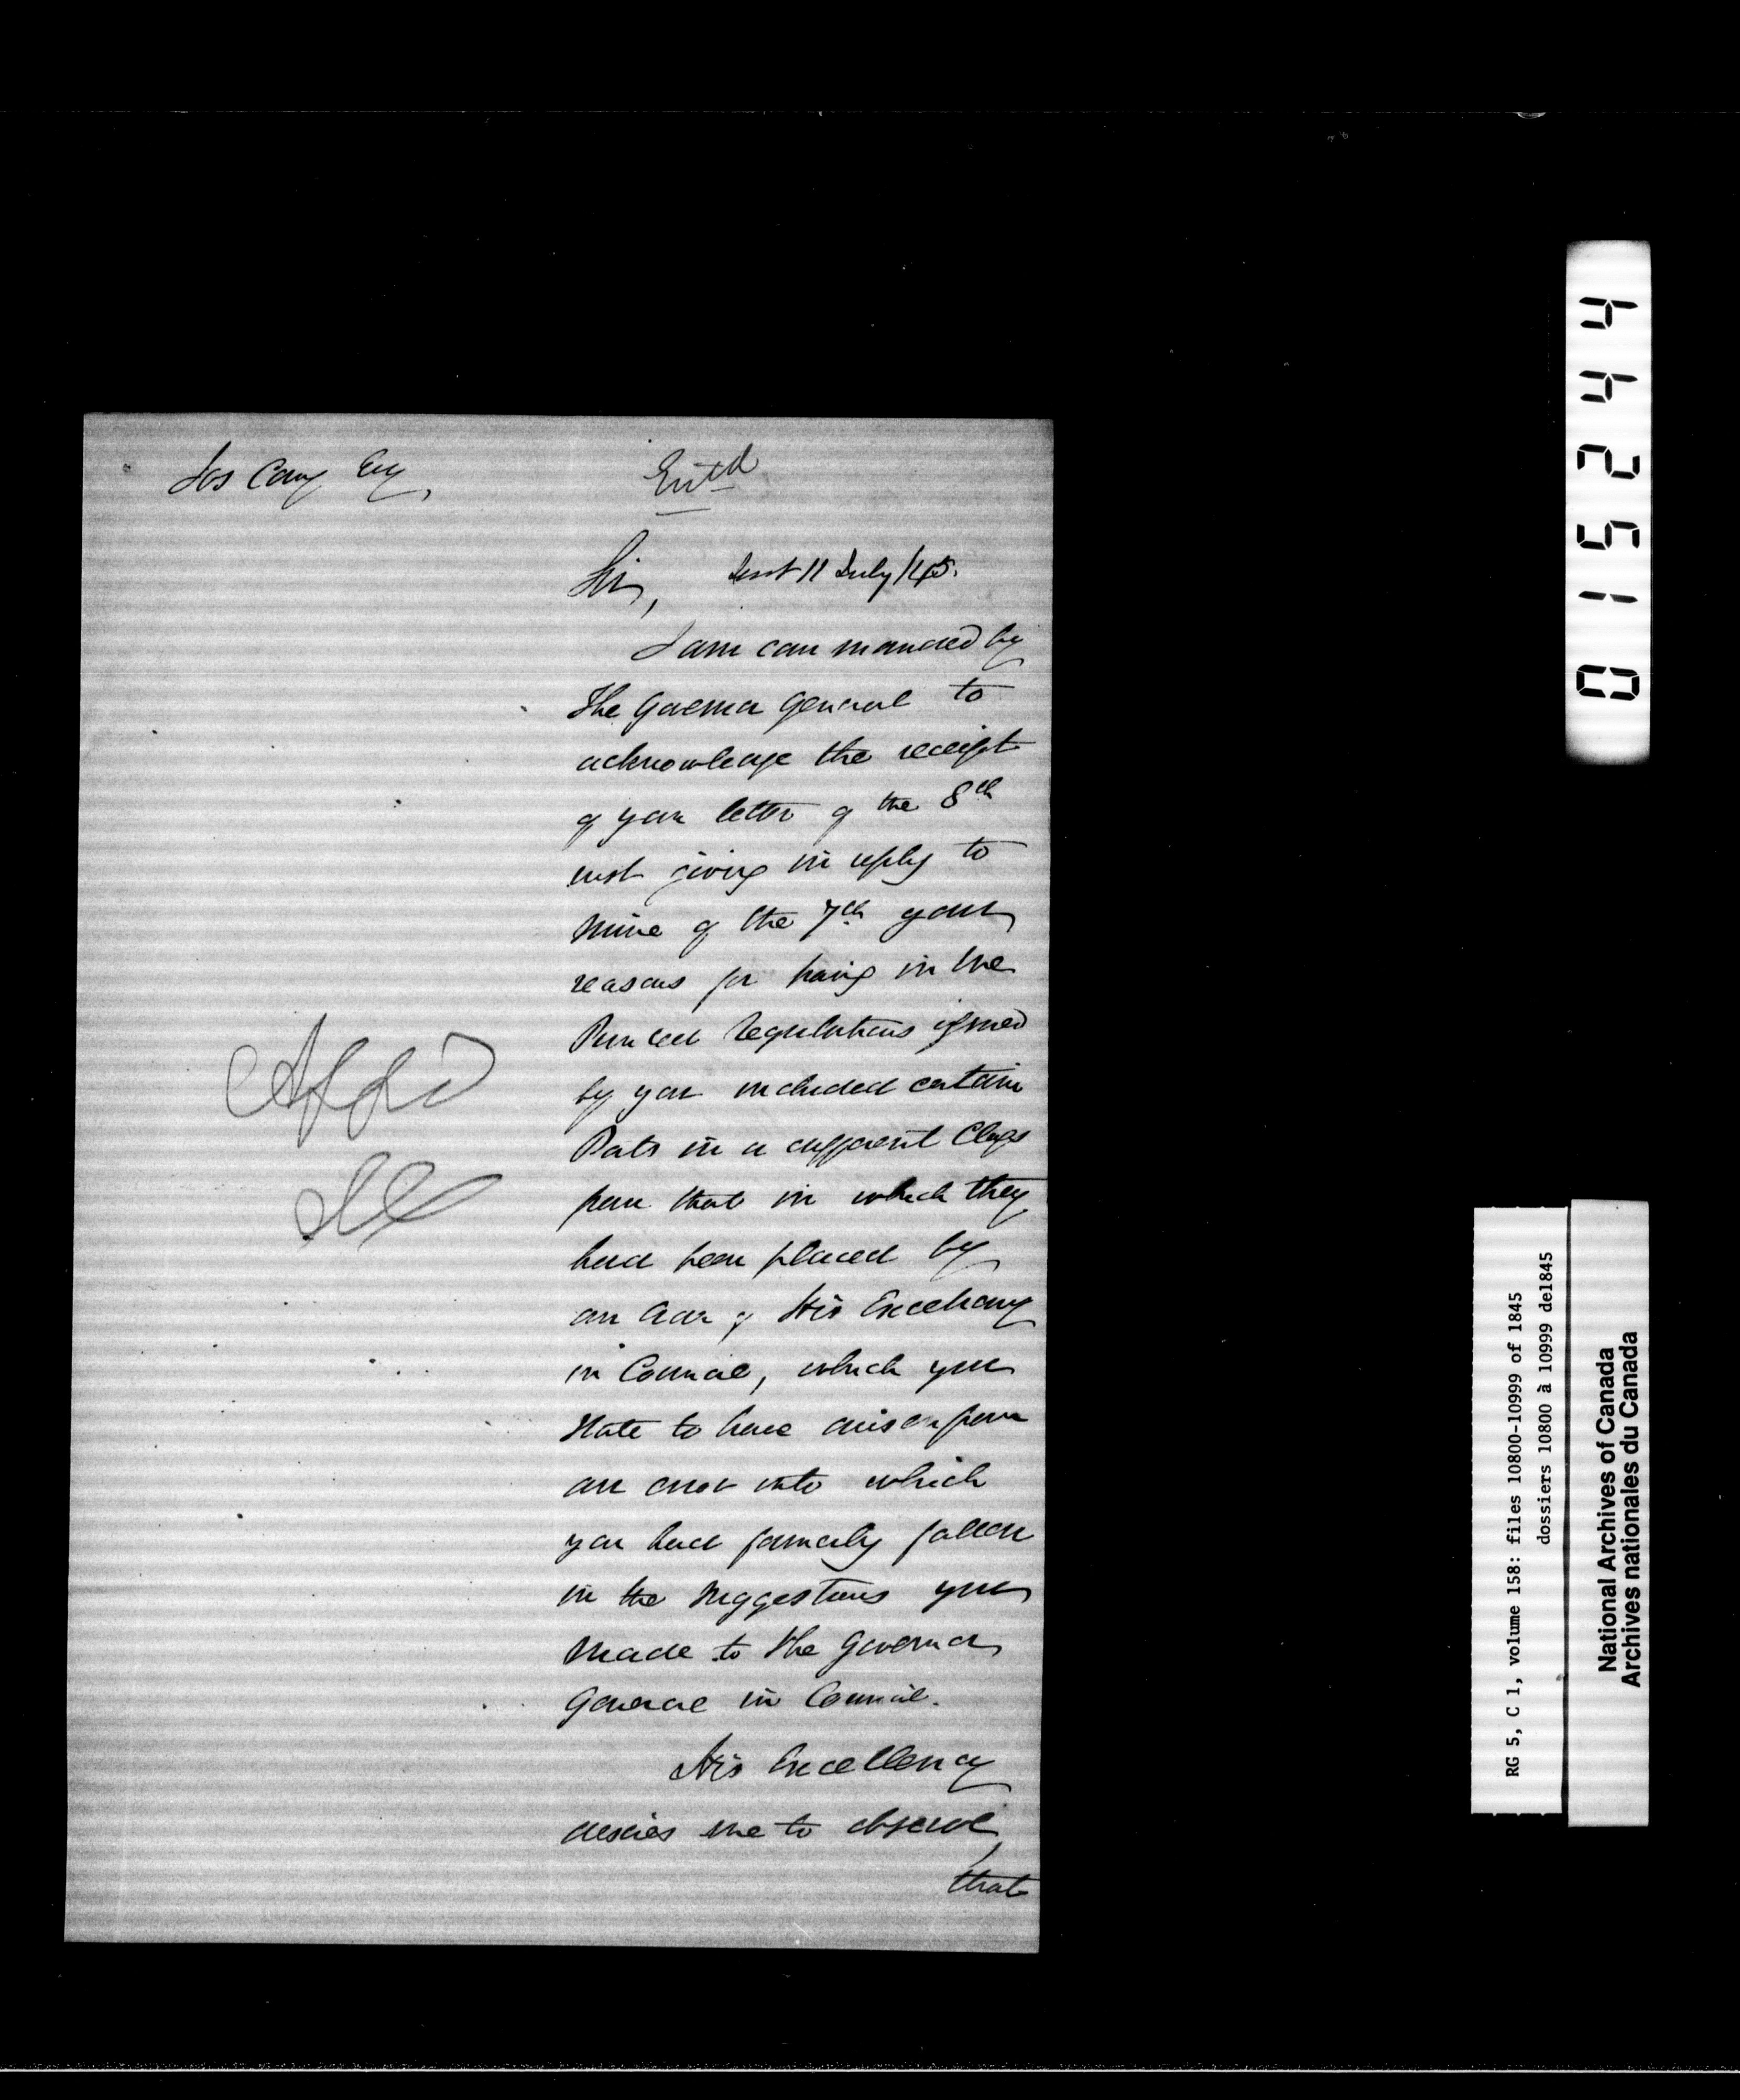 Jos Cary Esq
Entd
Sir,
Sent 11 July /45.
I am commanded by
the Governor General to
acknowledge the receipt
of your letter of the 8th
inst giving in reply to
mine of the 7th your
reasons for having in the
Printed Regulations issued
by you included certain
Ports in a different Class
from that in which they
had been placed by
an Order of His Excellency
in Council, which you
state to have arisen from
an error into which
you had formerly fallen
in the suggestions you
made to the Governor
General in Council.
His Excellency
desires me to observe,
that
Appd
0 1 5 2 4 4
RG 5, C 1, volume 158: files 10800-10999 of 1845
dossiers 10800 à 10999 de1845
National Archives of Canada
Archives nationales du Canada